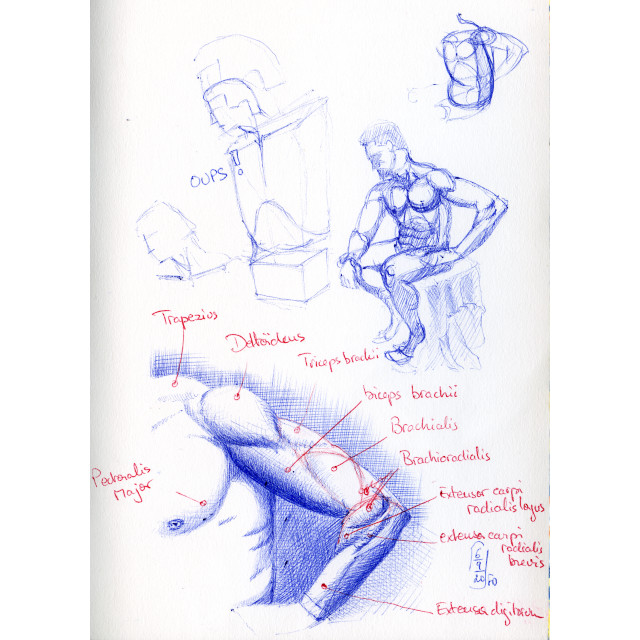 OUPS !
Trapezius
Deltoideus
Triceps brachii
biceps brachii
Brachialis
Brachioradialis
Pectoralis
Major
Extensor carpi
radialis longus
extensor carpi
radialis
brevis
6
9
20
Extensor digitorum